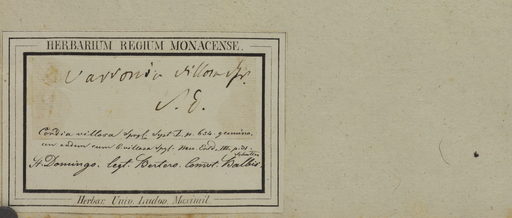 HERBARIUM REGIUM MONACENSE.
Varronia villosa Spr.
S. E.
Cordia villosa Sprgl. Syst. I. n. 654. genuina.
an eadem cum C. villosa Spgl. Neu. Entd. III. p. 21.
St. Domingo. legt. Bertero. Comm. Balbis.
Herbar. Univ. Ludov. Maximil.